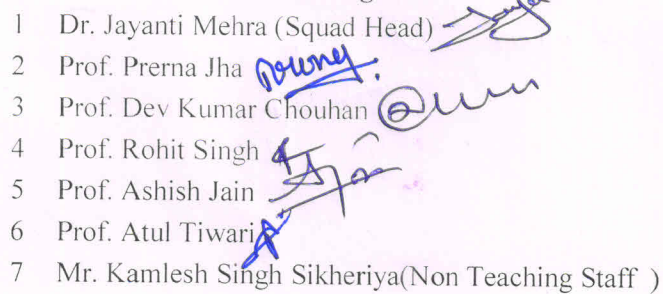 1 Dr. Jayanti Mehra (Squad Head)
2 Prof. Prerna Jha
3 Prof. Dev Kumar Chouhan
4 Prof. Rohit Singh
5 Prof. Ashish Jain
6 Prof. Atul Tiwari
7 Mr. Kamlesh Singh Sikheriya(Non Teaching Staff )